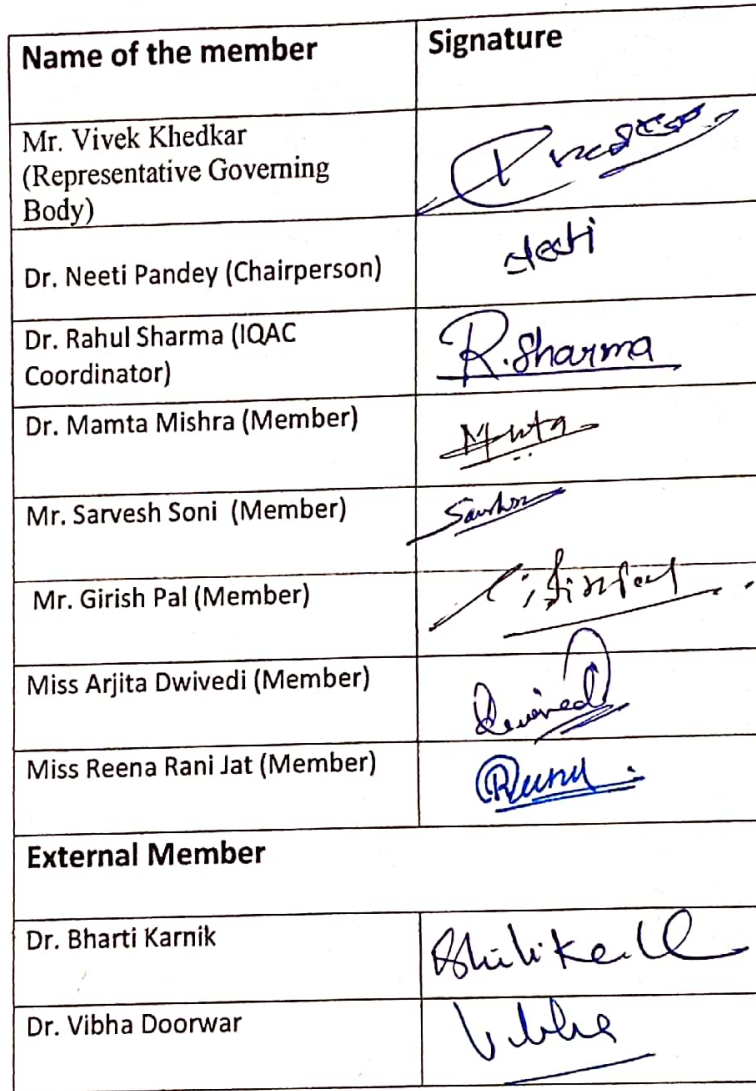 Name of the member Signature
Mr. Vivek Khedkar
(Representative Governing
Body)
Dr. Neeti Pandey (Chairperson) Neeti
Dr. Rahul Sharma (IQAC
Coordinator) R.Sharma
Dr. Mamta Mishra (Member)
Mr. Sarvesh Soni (Member)
Mr. Girish Pal (Member)
Miss Arjita Dwivedi (Member)
Miss Reena Rani Jat (Member)
External Member
Dr. Bharti Karnik
Dr. Vibha Doorwar Vibha